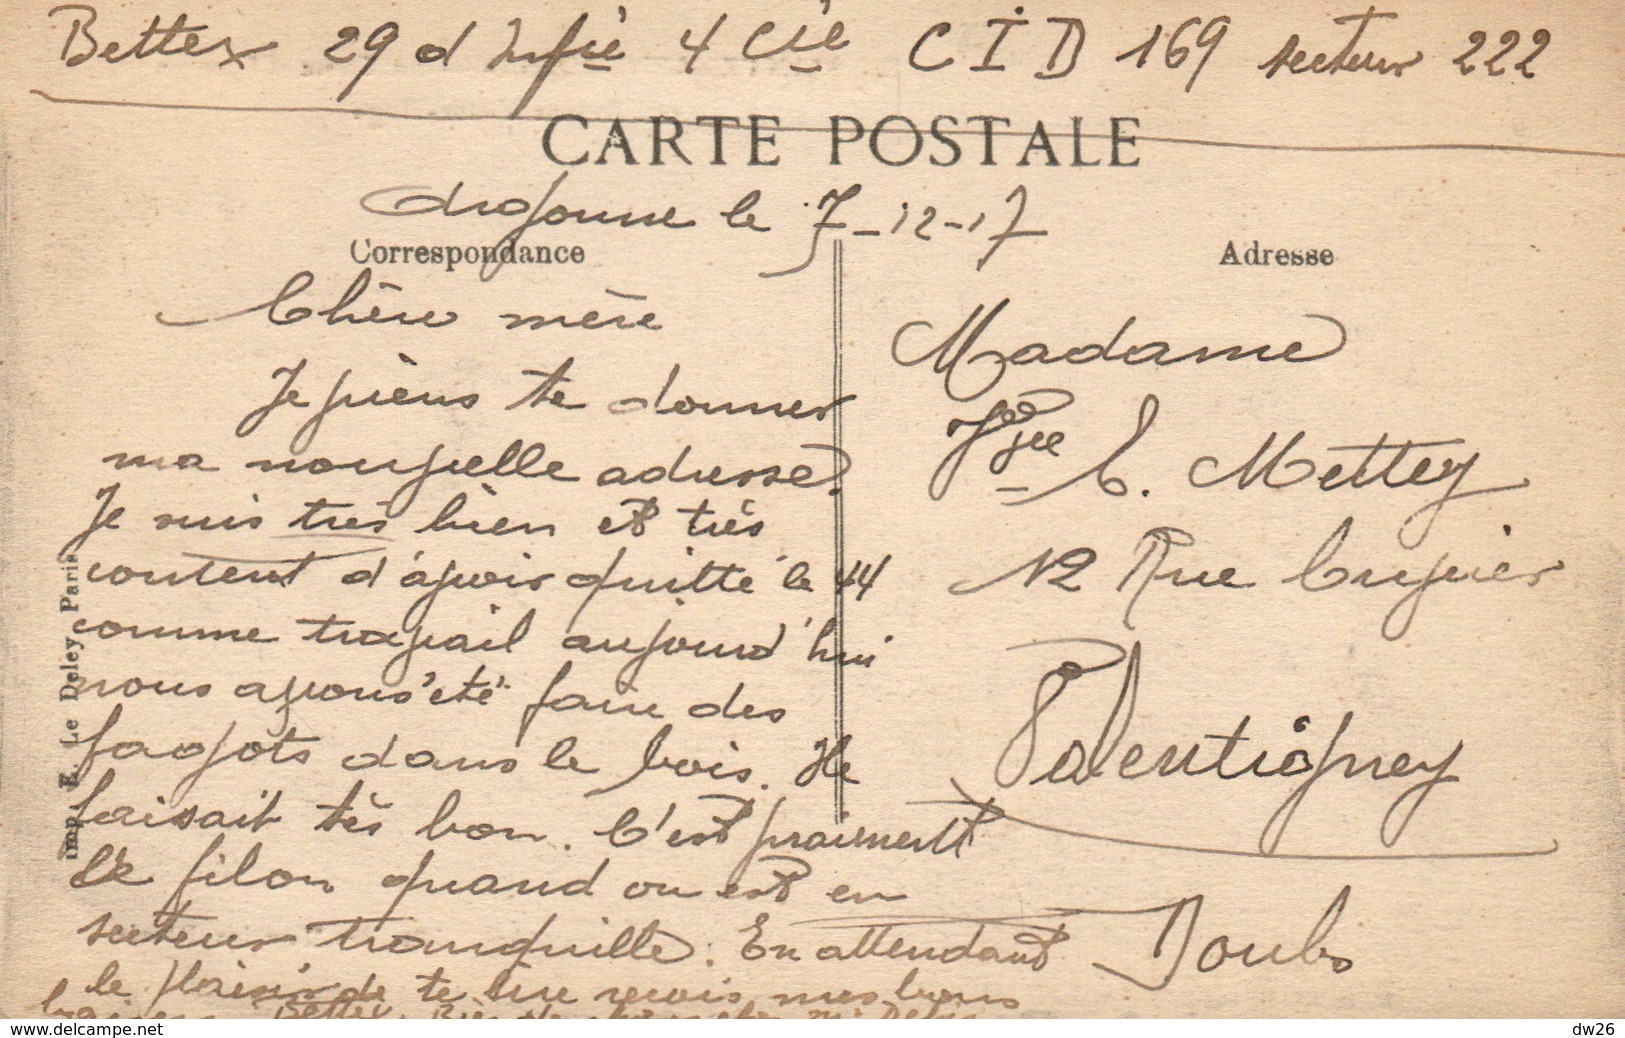 Bettex 29 d Infie 4 Cie C I D 169 secteur 222
CARTE POSTALE
Argonne le 7-12-17
Correspondance
Chère mère
Je viens te donner
ma nouvelle adresse.
Je suis très bien et très
content d'avoir quitté le 44
comme travail aujourd'hui
nous avons été faire des
fagots dans le bois. Il
faisait tès bon. C'est vraiment
le filon quand on est en
secteur tranquille. En attendant
le plaisir de te lire reçois mes bons
baisers. Bettex.
Imp. E. Le Deley Paris
Adresse
Madame
Vve E. Mettey
12 Rue Cuvier
Valentigney
Doubs
www.delcampe.net
dw26